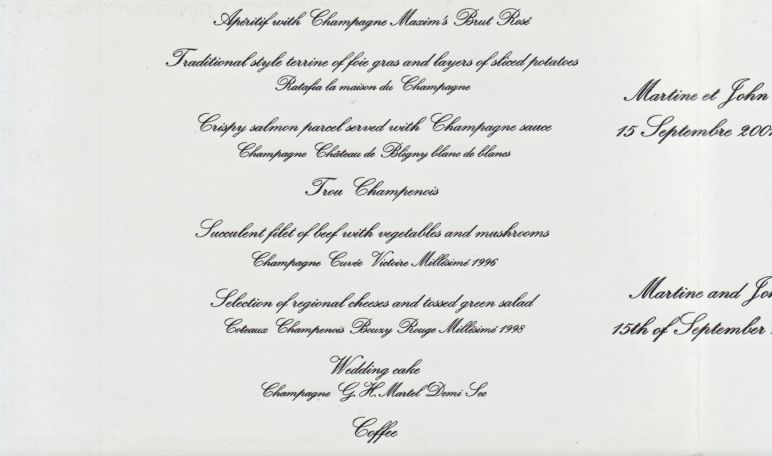 Apéritif with Champagne Maxim's Brut Rosé
Traditional style terrine of foie gras and layers of sliced potatoes
Ratafia la maison du Champagne
Crispy salmon parcel served with Champagne sauce
Champagne Château de Bligny blanc de blancs
Trou Champenois
Succulent filet of beef with vegetables and mushrooms
Champagne Cuvée Victoire Millésimé 1996
Selection of regional cheeses and tossed green salad
Coteaux Champenois Bouzy Rouge Millésimé 1998
Wedding cake
Champagne G.H. Martel Demi Sec
Coffee
Martine et John
15 Septembre
Martine and
15th of September